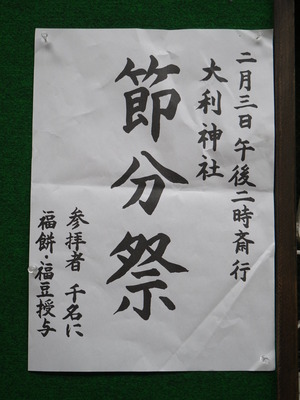 二月三日午後二時斎行
大利神社
節分祭
参拝者 千名に
福餅・福豆授与